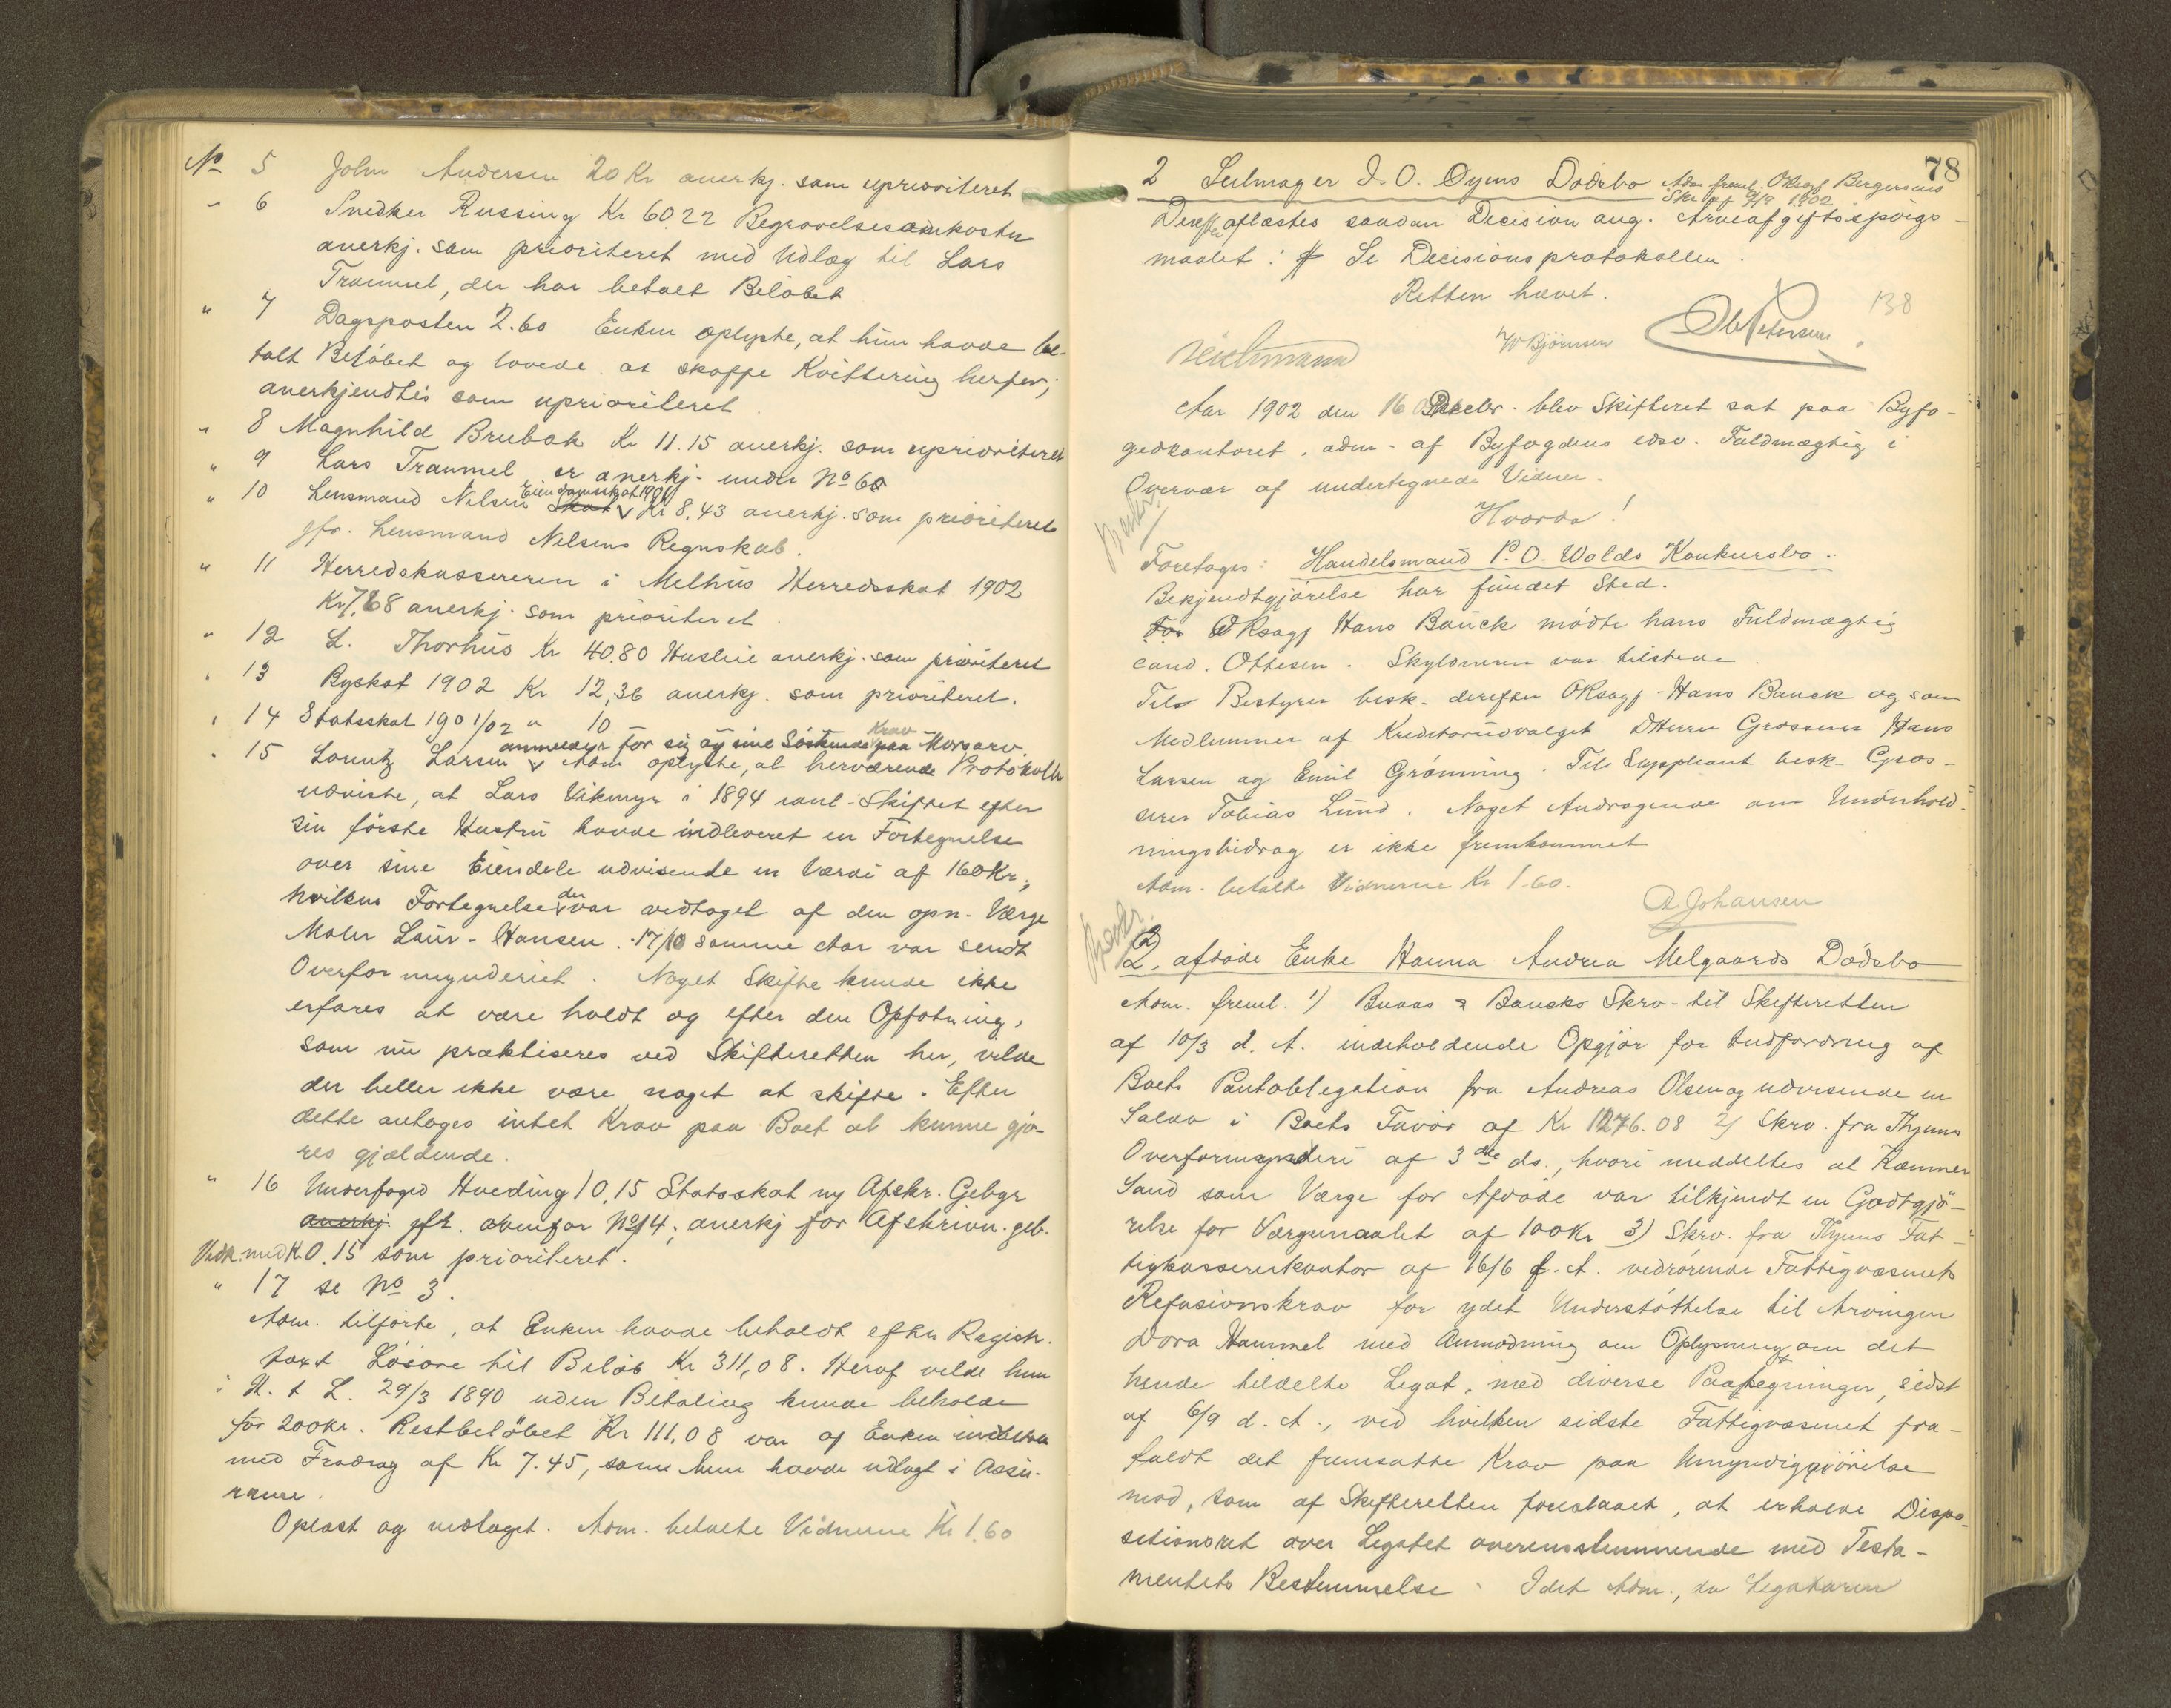 No 5 John Andersen 20 Kr anerkj. som uprioriteret
" 6 Snedker Russing Kr 60.22 Begravelsesomkoster
anerkj. som prioriteret med Udlæg til Lars
Trammel, der har betalt Beløbet
" 7 Dagsposten 2.60 Enken oplyste, at hun havde be-
talt Beløbet og lovede at skaffe Kvittering herfor;
anerkjendtes som uprioriteret.
" 8 Magnhild Brubak Kr 11.15 anerkj. som uprioriteret
" 9 Lars Trammel er anerkj. under No 6
" 10 Lensmand Nilsen Skat Eiendomsskat 1901 Kr 8,43 anerkj. som prioriteret
jfr. Lensmand Nelsens Regnskab.
" 11 Herredskassereren i Melhus Herredsskat 1902
Kr 7,68 anerkj. som prioriteret.
" 12 L. Thorhus Kr 40.80 Husleie anerkj. som prioriteret
" 13 Byskat 1902 Kr 12,36 anerkj. som prioriteret.
" 14 Statsskat 1901/02 " 10
" 15 Lorentz Larsen anmelder for sig og sine Søskende Krav paa Morsarv.
Adm oplyste, at herværende Protokoller
udviste, at Lars Vikmyr i 1894 anl. Skiftet efter
sin første Hustru havde indleveret en Fortegnelse
over sine Eiendele udvisende en Værdi af 160 Kr.,
hvilken Fortegnelse der var vedtaget af den opn. Værge
Maler Laur. Hansen. 17/10 samme Aar var sendt
Overformynderiet. Noget Skifte kunde ikke
erfares at være holdt og efter den Opfatning,
som nu praktiseres ved Skifteretten her, vilde
der heller ikke være noget at skifte. Efter
dette antages intet Krav paa Boet at kunne gjø-
res gjældende.
" 16 Underfoged Hveding 10,15 Statsskat og Afskr. Gebyr
anerkj. jfr. ovenfor No 14; anerkj for Afskrivn. geb.
Vedk. med K. 0.15 som prioriteret.
" 17 se No 3.
Adm. tilførte, at Enken havde beholdt efter Registr.
taxt Løsøre til Beløb Kr 311,08. Heraf vilde hun
i H. t L. 29/3 1890 uden Betaling kunde beholde
for 200 Kr. Restbeløbet Kr 111,08 var af Enken indbetalt
med Fradrag af Kr 7.45, som hun havde udlagt i Assu-
rance.
Oplæst og vedtaget. Adm. betalte Vidnerne Kr 1.60
78
2 Seilmager I. O. Øyens Dødsbo Adm freml. OKsagf Bergersens
Skr af 9/9 1902
Derefter aflæstes saadan Decision ang. Arveafgiftsspørgs-
maalet: Se Decisionsprotokollen.
Retten hævet.
138
W Bjørnsen
Ole Petersen
Aar 1902 den 16 Decbr. blev Skifteret sat paa Byfo-
gedkontoret, adm. af Byfogdens edsv. Fuldmægtig i
Overvær af undertegnede Vidner.
Hvorda!
Foretages: Handelsmand P. O. Wolds Konkursbo.
Bekjendtgjørelse har fundet Sted.
For OKsagf Hans Bauck mødte hans Fuldmægtig
cand. Ottesen. Skyldneren var tilstede.
Til Bestyrer besk. derefter OKsagf. Hans Bauck og som
Medlemmer af Kreditorudvalget DHerrer Grosserer Hans
Larsen og Emil Grønning. Til Suppleant besk. Gros-
serer Tobias Lund. Noget Andragende om Underhold-
ningsbidrag er ikke fremkommet
Adm. betalte Vidnerne Kr 1.60.
A Johansen
2, afdøde Enke Hanna Andrea Melgaards Dødsbo
Adm. freml. 1) Buaas & Baucks Skrv. til Skifteretten
af 10/3 d. A. indeholdende Opgjør for Indfordring af
Boets Pantobligation fra Andreas Olsen og udvisende en
Saldo i Boets Favør af Kr 1276.08 2) Skrv. fra Thjems
Overformynderi af 3die ds., hvori meddeltes at Kæmner
Sand som Værge for Afdøde var tilkjendt en Godtgjø-
relse for Værgemaalet af 100 Kr 3) Skrv. fra Thjems Fat-
tigkassererkontor af 16/6 f. A. vedrørende Fattigvæsenets
Refusionskrav for ydet Understøttelse til Arvingen
Dora Hammel med Anmodning om Oplysning om det
hende tildelte Legat, med diverse Paategninger, sidst
af 6/9 d. A., ved hvilken sidste Fattigvæsenet fra-
faldt det fremsatte Krav paa Umyndiggjørelse
mod, som af Skifteretten foreslaaet, at erholde Dispo-
sitionsret over Legatet overensstemmende med Testa-
mentets Bestemmelse. Idet Adm., da Legataren